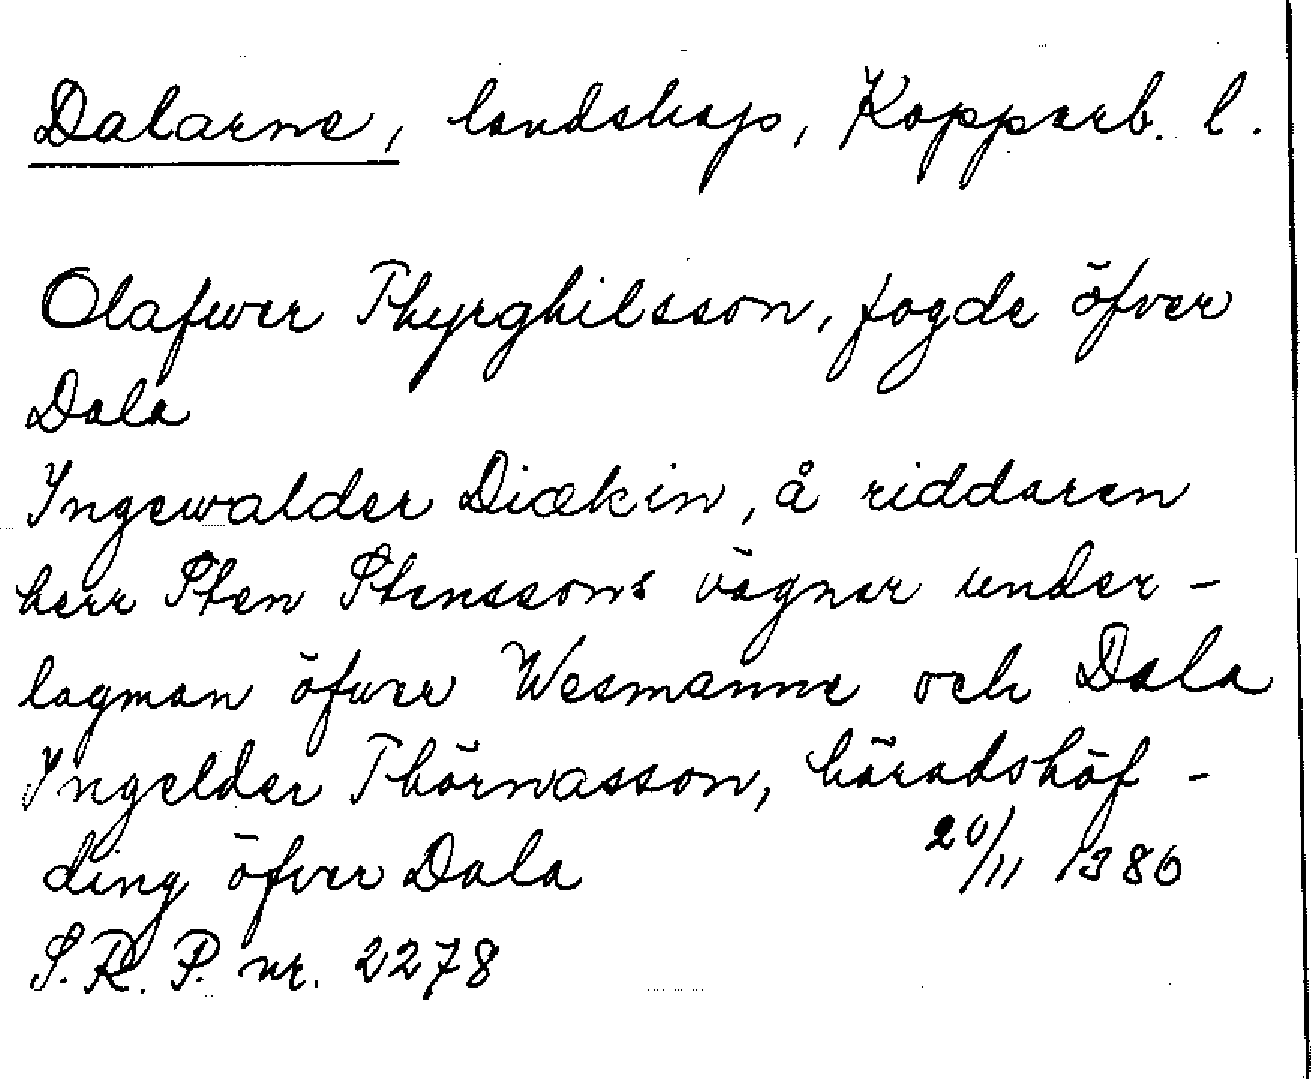 Dalarne, landskap, Kopparb. l.
Olafwer Thyrghilsson, fogde öfver
Dala
Ingewalder Diækin, å riddaren
herr Sten Stenssons vägnar under-
lagman öfwer Wesmanne och Dala
Ingelder Thörnasson, häradshöf-
ding öfver Dala 20/11 1386
S.R.P. nr. 2278